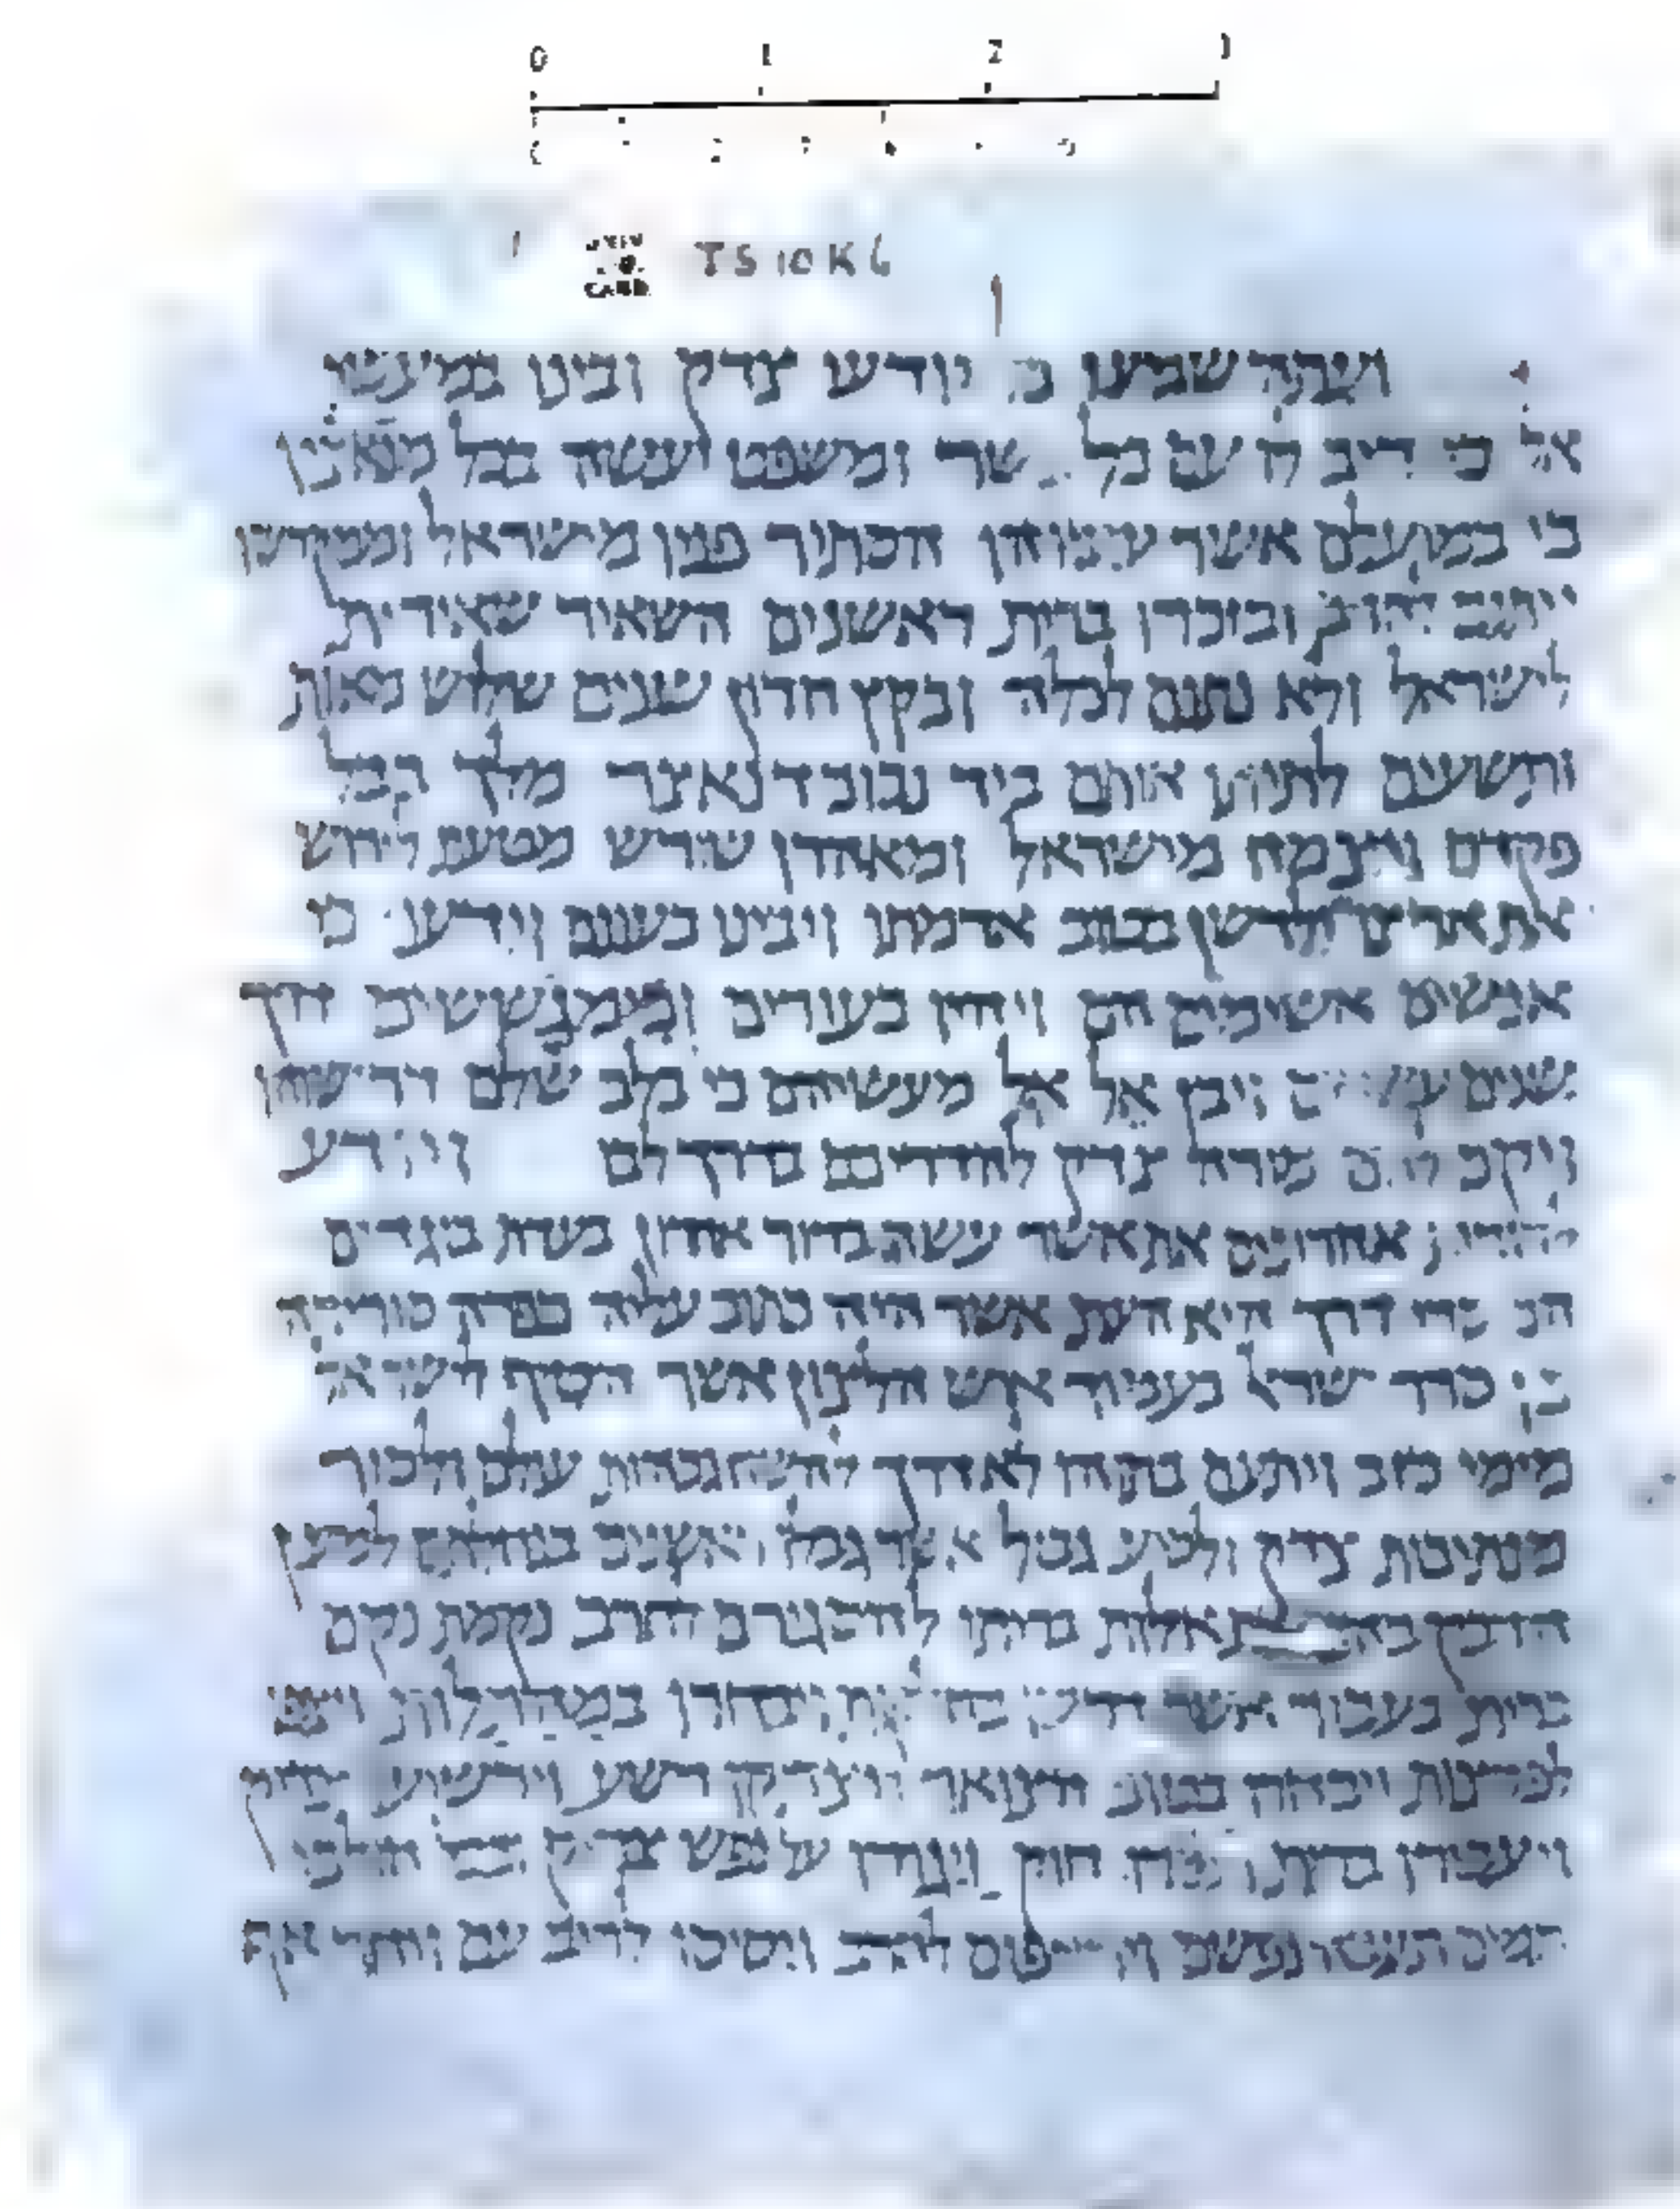 0 1 2 3
TS 10 K 6
1
ועתה שמעו כל יודעי צדק ובינו במעשי
אל כי ריב לו עם כל בשר ומשפט יעשה בכל מנאציו
כי במועלם אשר עזבוהו הסתיר פניו מישראל וממקדשו
ויתנם לחרב ובזכרו ברית ראשנים השאיר שאירית
לישראל ולא נתנם לכלה ובקץ חרון שנים שלוש מאות
ותשעים לתיתו אותם ביד נבוכדנאצר מלך בבל
פקדם ויצמח מישראל ומאהרן שורש מטעת לירוש
את ארצו ולדשן בטוב אדמתו ויבינו בעונם וידעו כי
אנשים אשימים הם ויהיו כעורים וכימגששים דרך
שנים עשרים ויבן אל אל מעשיהם כי בלב שלם דרשוהו
ויקם להם מורה צדק להדריכם בדרך לבו ויודע
לדורות אחרונים את אשר עשה בדור אחרון בעדת בוגדים
הם סרי דרך היא העת אשר היה כתוב עליה כפרה סורירה
כן סרר ישראל בעמוד איש הלצון אשר הטיף לישראל
מימי כזב ויתעם בתוהו לא דרך להשח גבהות עולם ולסור
מנתיבות צדק ולסיע גבול אשר גבלו ראשנים בנחלתם למען
הדבק בהם את אלות בריתו להסגירם לחרב נקמת נקם
ברית בעבור אשר דרשו בחלקות ויבחרו במהתלות ויצפו
לפרצות ויבחרו בטוב הצואר ויצדיקו רשע וירשיעו צדיק
ויעבירו ברית ויפירו חוק ויגודו על נפש צדיק ובכל הולכי
תמים תעבה נפשם וירדפום לחרב ויסיסו לריב עם ויחר אף